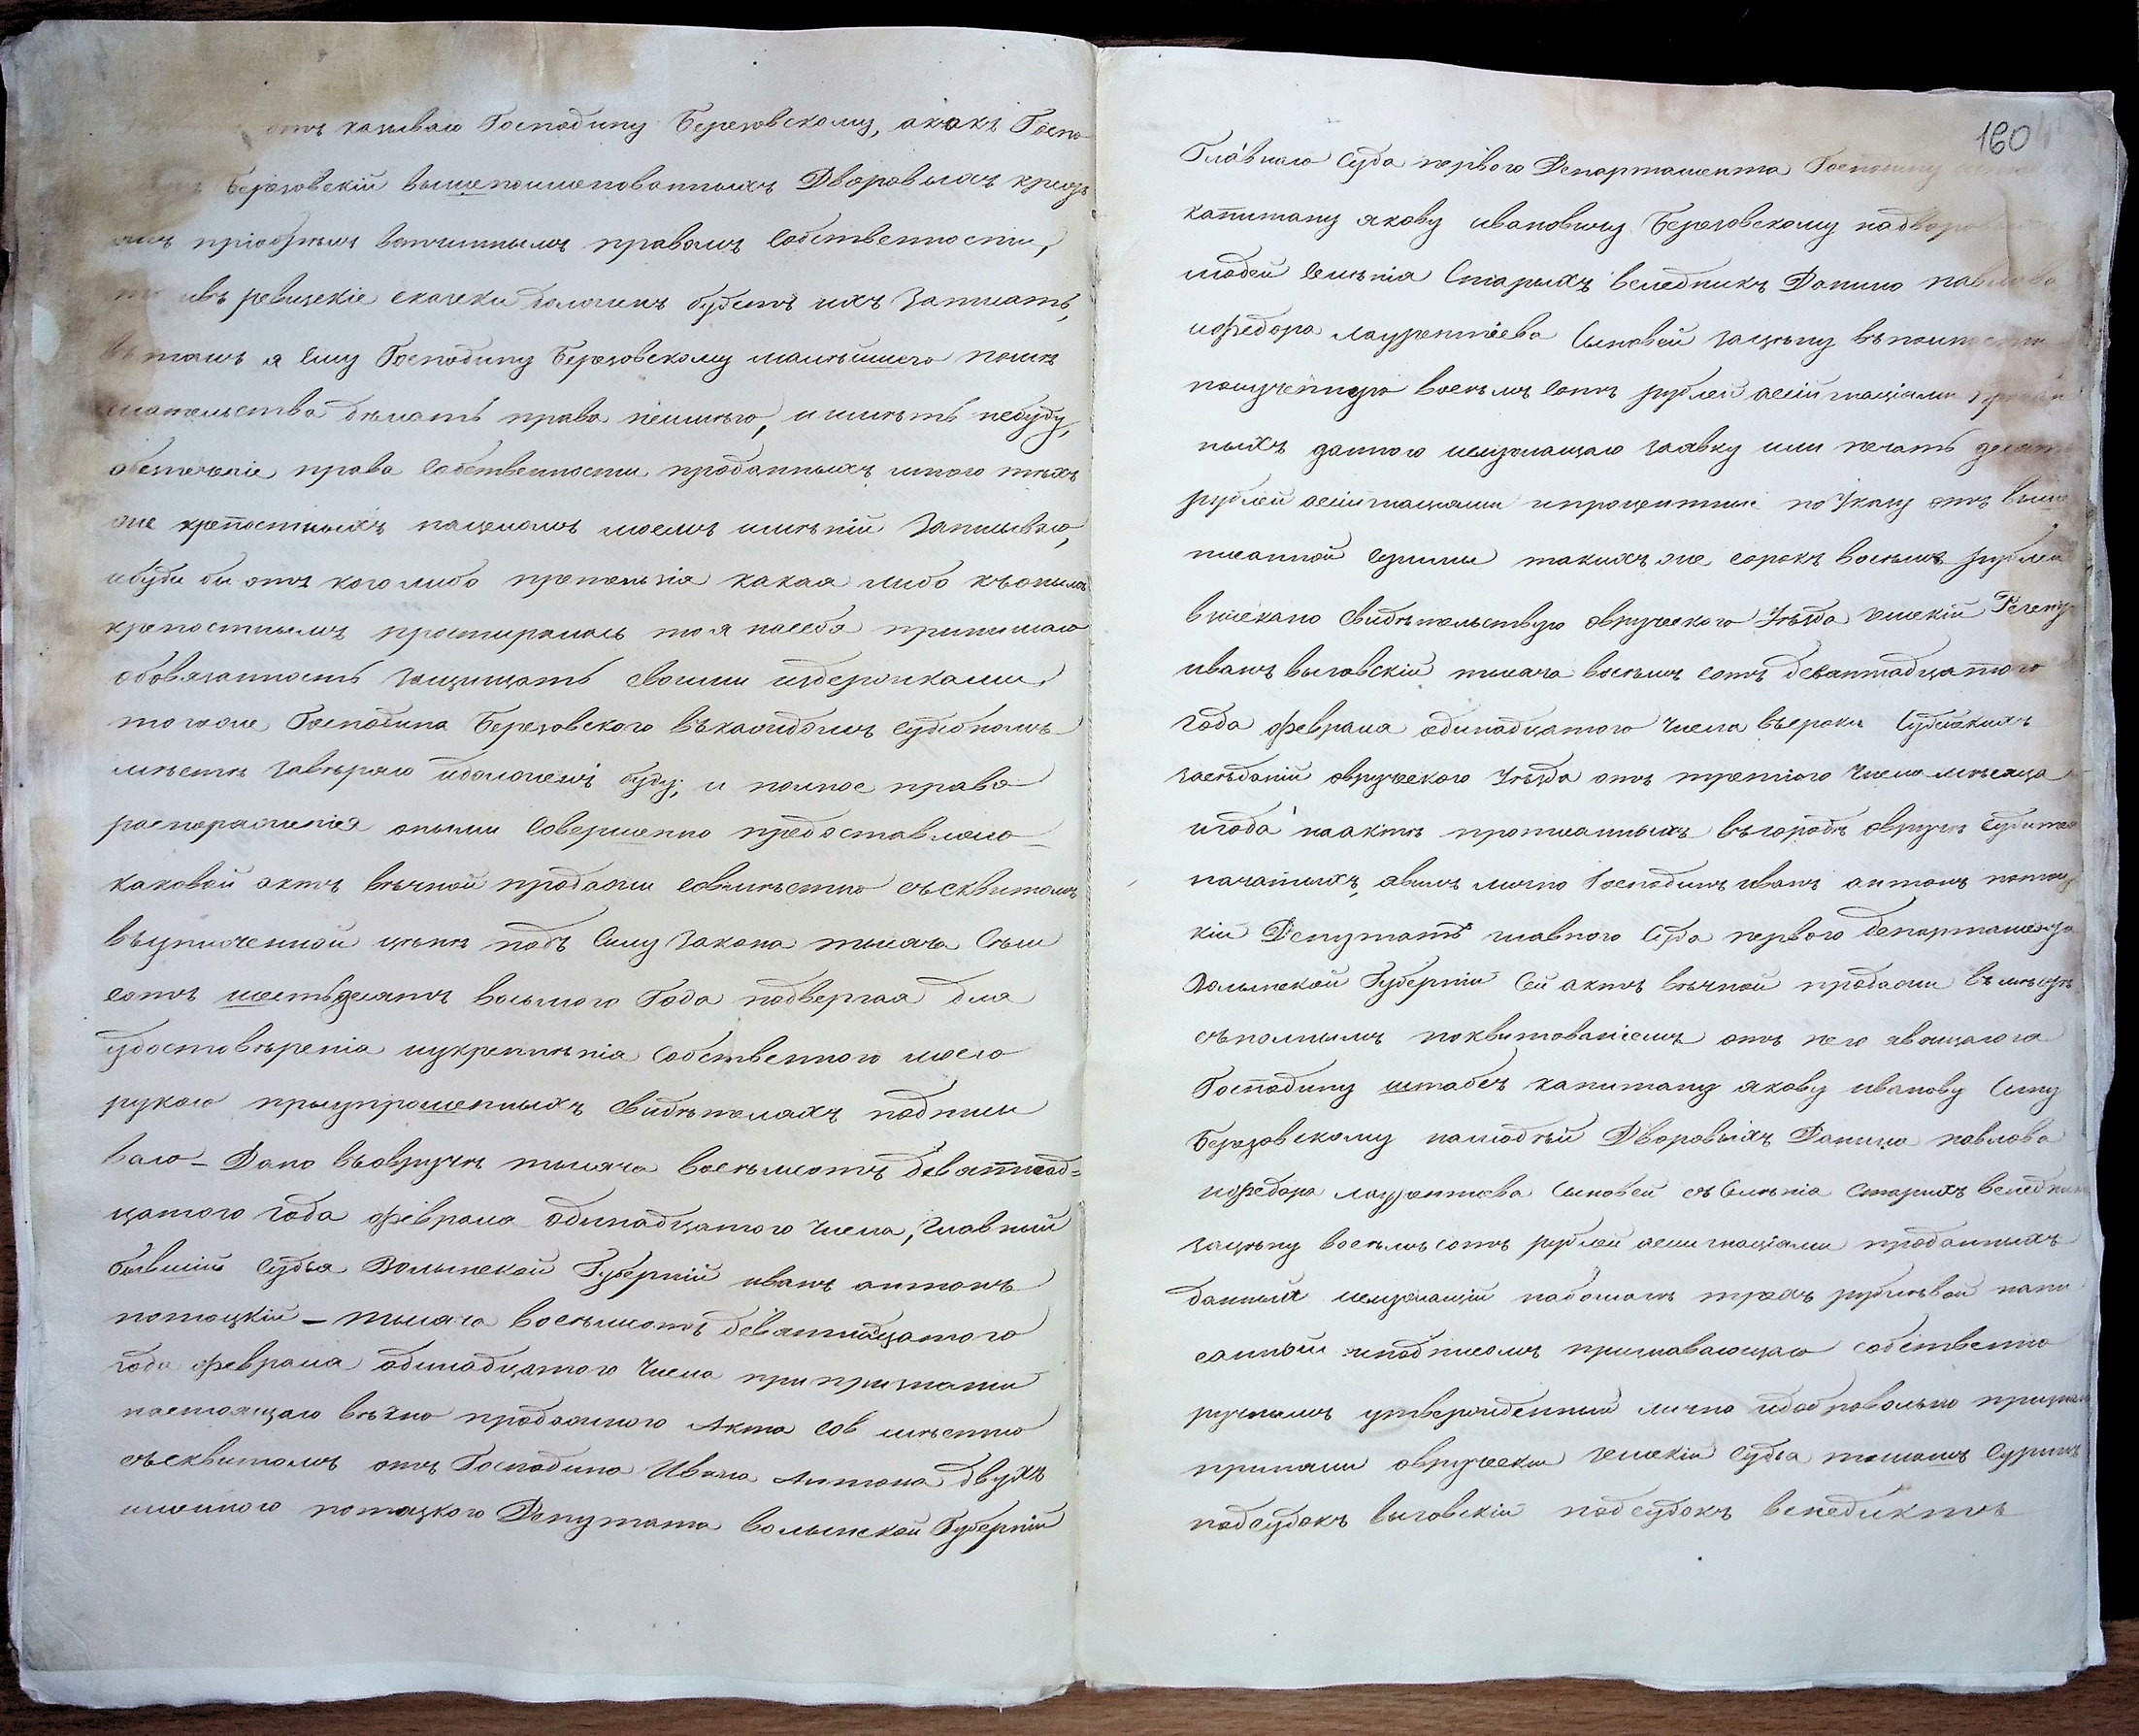 отъ казываю Господину Березовскому, акакъ Госпо-
Березовскій вышепоименованныхъ Дворовыхъ кресть
янъ пріобрѣлъ вотчиннымъ правомъ Собственности,
ивъ ревизскіе сказки долженъ будетъ ихъ Записать,
втомъ я Ему Господину Березовскому малѣйшего помѣ
шательства дѣлать права неимѣю, и имѣть небуду,
обезпеченіе права Собственности проданныхъ мною тѣхъ
же крепостныхъ нацеломъ моемъ имѣніи Записываю,
ибуди бы отъ кого либо претензія какая либо къонымъ
крепостнымъ простиралась то я насебя принимаю
обовязанность Защищать своими издержками,
тогоже Господина Березовского въкаждомъ Судебномъ
мѣстѣ Завѣряю идолженъ буду; и полное право
распоряженія оными Совершенно предоставляю
каковой актъ вѣчной продажи совмѣстно съсквитомъ
въуплоченной цѣнѣ подъ Силу Закона тысяча Семь
сотъ шестьдесятъ восьмого Года подвергая для
удостовѣренія иукрепленія Собственного моего
рукою приупрошенныхъ Свидѣтеляхъ подписы
ваю – Дано въовручѣ тысяча восѣмсотъ девятнад=
цатого года февраля одинадцатого числа, Главный
бывшій Судья Волынской Губерніи иванъ антонъ
потоцкій – тысяча восѣмсотъ девятнадцатого
года февраля одинадцатого числа припризнаніи
настоящаго вѣчно продажного Акта сов мѣстно
съсквитомъ отъ Господина Ивана Антона двухъ
имённого потоцкого Депутата волынской Губерніи
160
Главного Суда первого Департамента Господину
капитану якову ивановичу Березовскому надворо
людей Имѣнія Старыхъ веледникъ Данило павлова
ифедора лаурентіева Сыновей зацѣну въполности
полученную восѣмъ сотъ рублей ассигнаціями
ныхъ данного
рублей ассигнаціями ипроцентніи по Указу отъ выше
писанной суммы такихъ же сорокъ восѣмъ рублей
взыскано Свидѣтельствую овруческого Уѣзда земскій Регентъ
иванъ выговскій тысяча восѣмъ сотъ девятнадцатого
года февраля одинадцатого числа въсроки Судейскихъ
засѣданій овруческого Уѣзда отъ третіого числа мѣсяца
игода наактѣ прописанныхъ въгородѣ овручѣ
начатыхъ, явясь лично Господинъ иванъ антонъ потоц
кій Депутатъ главного Суда первого департамента
Волынской Губерніи Сей актъ вѣчной продажи въмѣстѣ
съполнымъ поквитованіемъ отъ него явящагося
Господину штабсъ капитану якову иванову Сыну
Березовскому налюдѣй Дворовыхъ Данило павлова
ифедора лаурентіева Сыновей съ Имѣнія Старихъ веледникъ
зацѣну восѣмъ сотъ рублей ассигнаціями проданныхъ
данный служащій набѣломъ трехъ рублевой напи
санный иподписомъ признавающаго собственно
ручнымъ утвержденный лично идобровольно призналъ
приняли овручески земскій Судья томашъ
подсудокъ выговскій подсудокъ венедиктъ